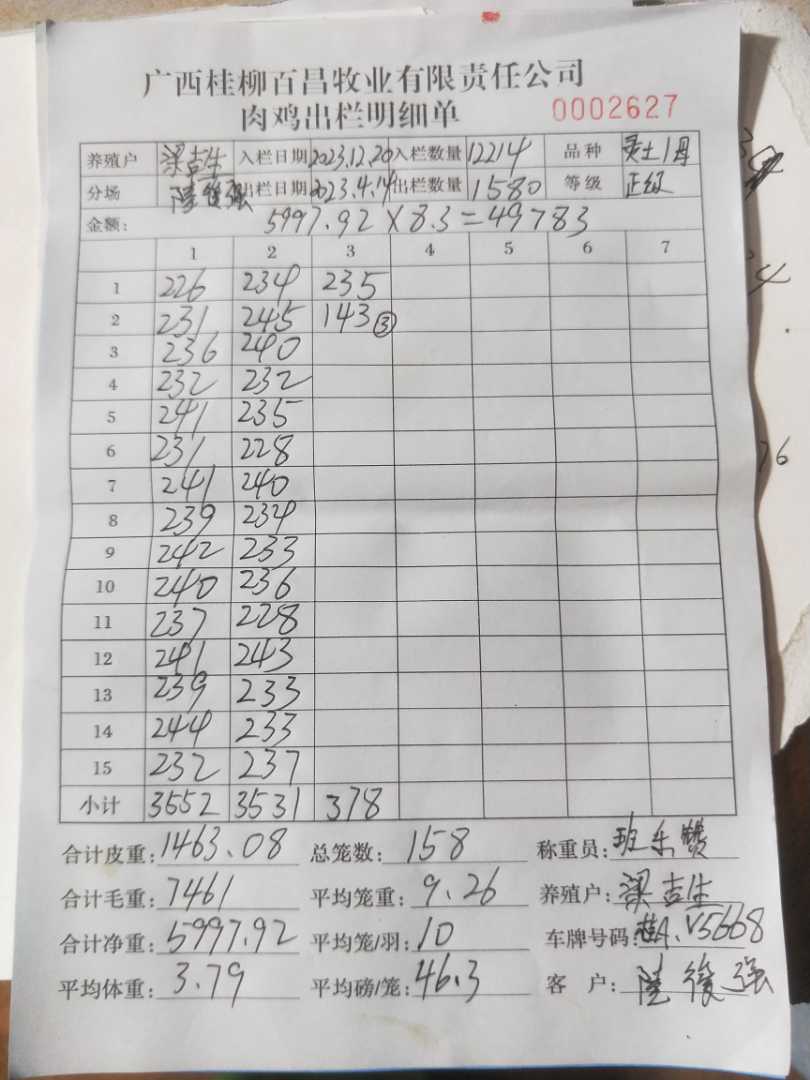 广西桂柳百昌牧业有限责任公司
肉鸡出栏明细单 0002627
养殖户 梁吉生 入栏日期 2023.12.20 入栏数量 12214 品种 灵土1母
分场 陆俊强 出栏日期 2023.4.14 出栏数量 1580 等级 正级
金额: 5997.92×8.3=49783
1 2 3 4 5 6 7
1 226 234 235
2 231 245 143③
3 236 240
4 232 232
5 241 235
6 231 228
7 241 240
8 239 234
9 242 233
10 240 236
11 237 228
12 241 243
13 239 233
14 244 233
15 232 237
小计 3552 3531 378
合计皮重: 1463.08 总笼数: 158 称重员: 班东赞
合计毛重: 7461 平均笼重: 9.26 养殖户: 梁吉生
合计净重: 5997.92 平均笼/羽: 10 车牌号码: A.V5668
平均体重: 3.79 平均磅/笼: 46.3 客户: 陆俊强